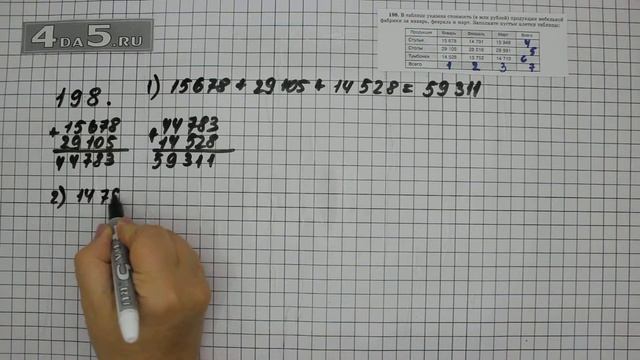 4DA5.RU
198. В таблице указана стоимость (в млн рублей) продукции мебельной
фабрики за январь, февраль и март. Заполните пустые клетки таблицы:
Продукция Январь Февраль Март Всего
Стулья 15 678 14 791 15 948 4
Столы 29 105 5
Тумбочки 14 528 6
Всего 1 2 3 7
198.
1) 15678 + 29105 + 14528 = 59311
+ 15678
29105
44783
+ 44783
14528
59311
2) 147